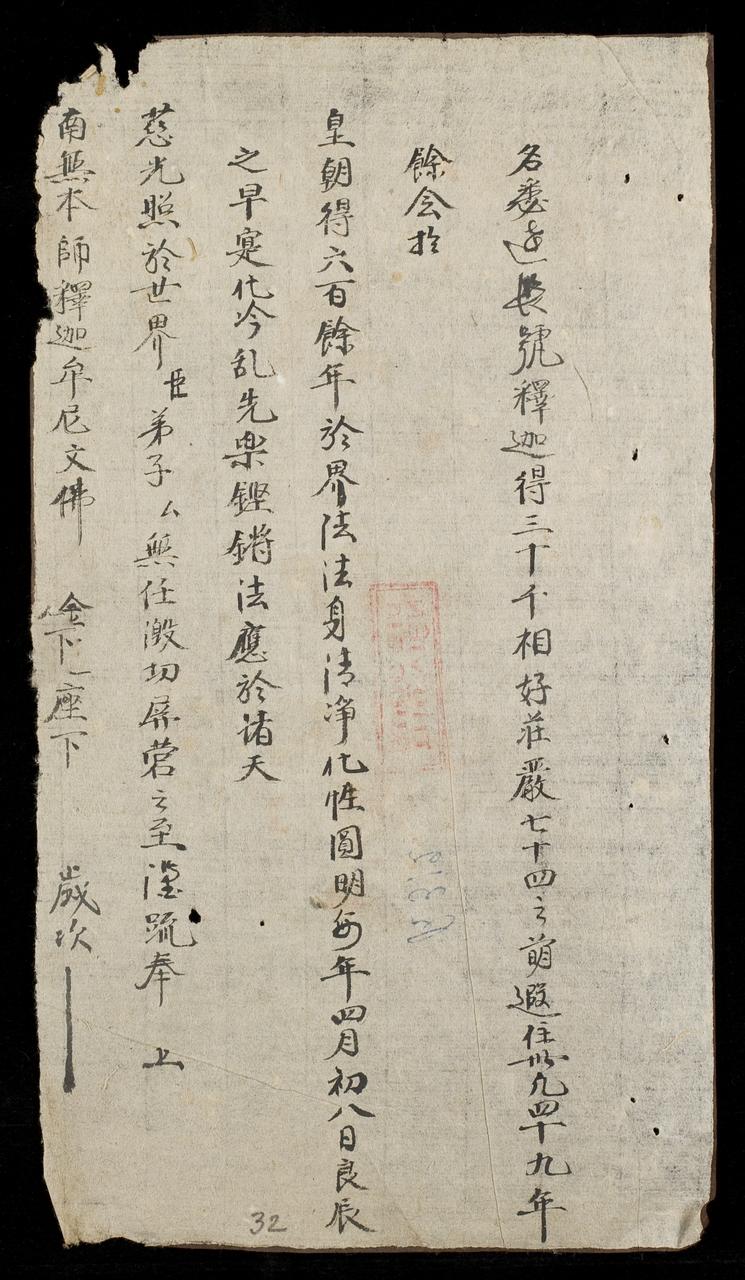 名 號釋迦得三十 相好莊嚴七十四之 遐住卅九四十九年
餘会於
皇朝得六百餘年於界法法身清净化性圓明每年四月初八日良辰
之早寔化今乱先樂鏗鏘法應於诸天
慈光照於世界臣弟子厶無任激切屏营之至谨疏奉上
南無本師釋迦牟尼文佛 金下座下 歲次
32